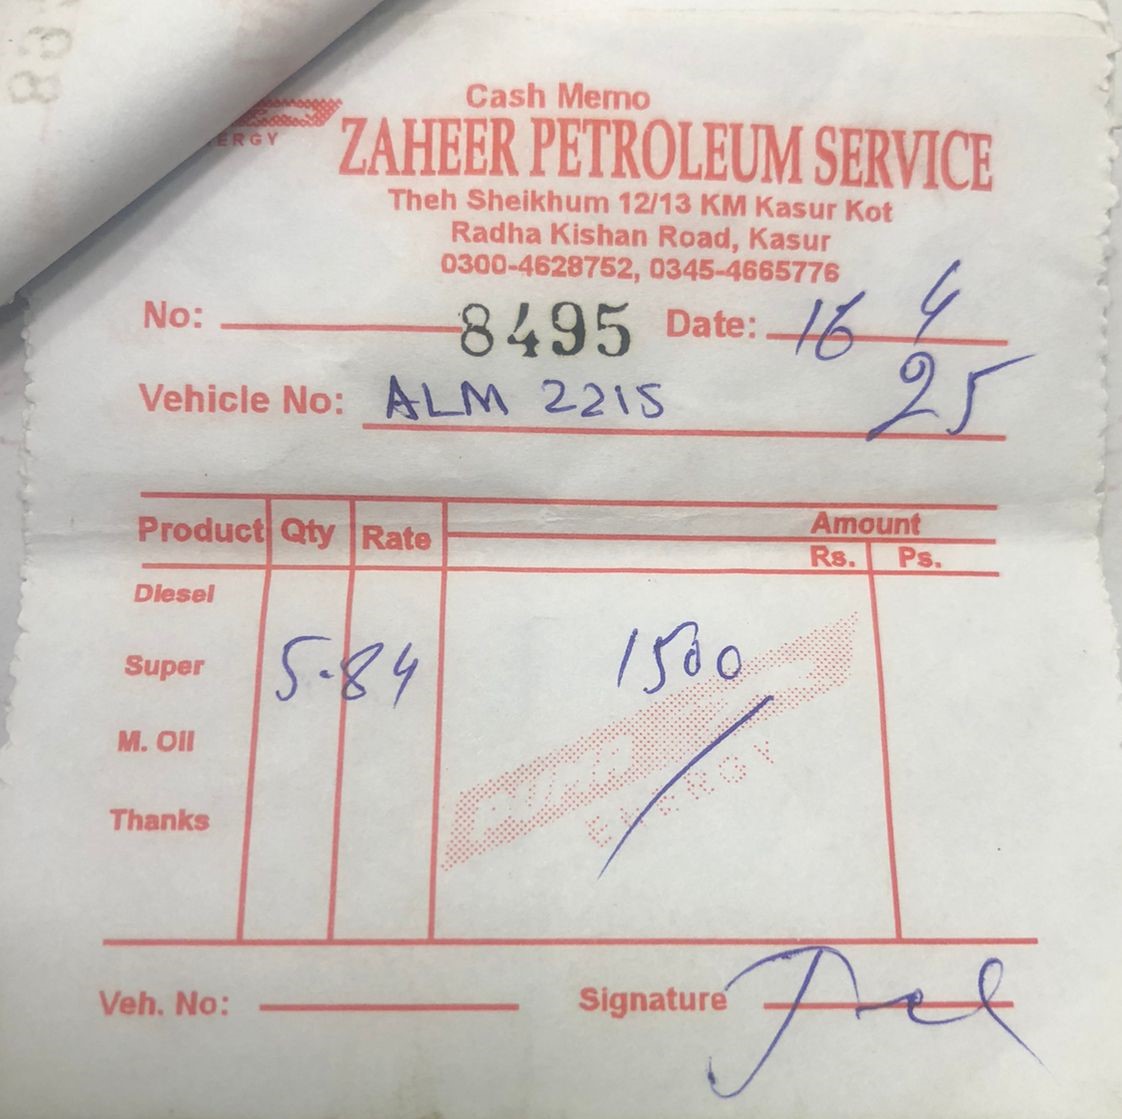 Cash Memo
ERGY
ZAHEER PETROLEUM SERVICE
Theh Sheikhum 12/13 KM Kasur Kot
Radha Kishan Road, Kasur
0300-4628752, 0345-4665776
No: 8495 Date: 16 4
25
Vehicle No: ALM 2215
Product Qty Rate Amount
Rs. Ps.
Diesel
Super 5.84 1500
M. Oil
PUMA
ENERGY
Thanks
Veh. No: Signature